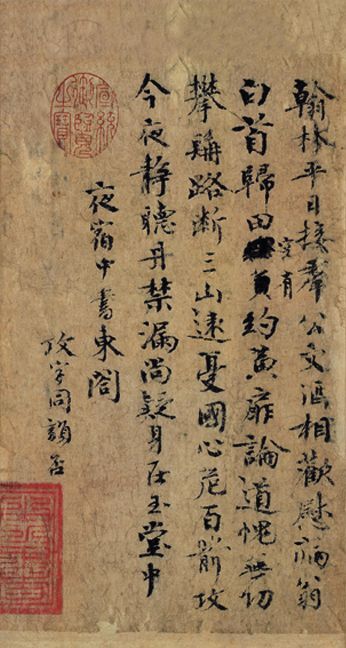 翰林平日接羣公文酒相歡慰病翁
白首歸田空有負約黃扉論道愧無功
攀髯路斷三山遠憂國心危百箭攻
今夜靜聽丹禁漏尚疑身在玉堂中
夜宿中書東閣
攻字同韻否
宣統御覽之寶